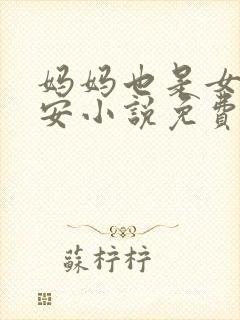 妈妈也是女
安小說免費
蘇柠柠